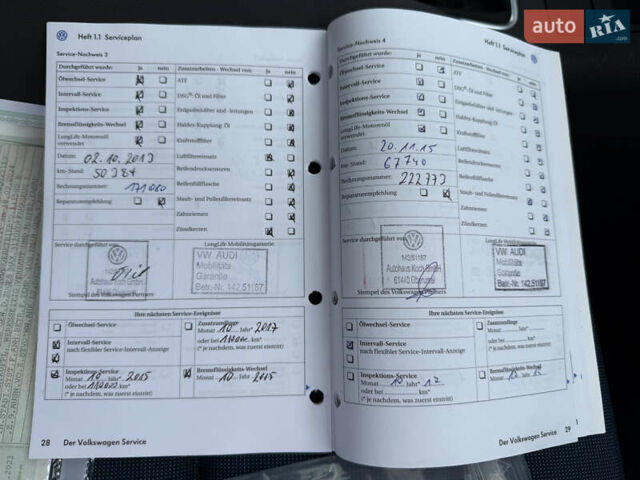 auto RIA.com
Heft 1.1 Serviceplan
Service-Nachweis 3
Durchgeführt wurde: Ja nein
Zusatzarbeiten - Wechsel von: Ja nein
Ölwechsel-Service
ATF
Intervall-Service
DSG®-Öl und Filter
Inspektions-Service
Erdgasbehälter und -leitungen
Bremsflüssigkeits-Wechsel
Haldex-Kupplung: Öl
LongLife-Motorenöl verwendet
Kraftstofffilter
Datum: 02.10.2013
Luftfiltereinsatz
km-Stand: 50387
Reifendrucksensoren
Rechnungsnummer: 171080
Reifenfüllflasche
Reparaturempfehlung
Staub- und Pollenfiltereinsatz
Zahnriemen
Zündkerzen
Service durchgeführt von:
LongLife Mobilitätsgarantie:
Autohaus Koch GmbH
61440 Oberursel
VW AUDI
Mobilitäts
Garantie
Betr.-Nr. 142.51187
Stempel des Volkswagen Partners
Ihre nächsten Service-Ereignisse
Ölwechsel-Service
Zusatzumfänge
Monat 10 Jahr* 2017
oder bei km*
(* je nachdem, was zuerst eintritt)
Intervall-Service
nach flexibler Service-Intervall-Anzeige
Inspektions-Service
Monat 10 Jahr* 2015
oder bei km*
(* je nachdem, was zuerst eintritt)
Bremsflüssigkeits-Wechsel
Monat 10 Jahr 2015
28 Der Volkswagen Service
Service-Nachweis 4
Heft 1.1 Serviceplan
Durchgeführt wurde: Ja nein
Zusatzarbeiten - Wechsel von: Ja nein
Ölwechsel-Service
ATF
Intervall-Service
DSG®-Öl und Filter
Inspektions-Service
Erdgasbehälter und -leitungen
Bremsflüssigkeits-Wechsel
Haldex-Kupplung: Öl
LongLife-Motorenöl verwendet
Kraftstofffilter
Datum: 20.11.15
Luftfiltereinsatz
km-Stand: 67740
Reifendrucksensoren
Rechnungsnummer: 222773
Reifenfüllflasche
Reparaturempfehlung
Staub- und Pollenfiltereinsatz
Zahnriemen
Zündkerzen
Service durchgeführt von:
LongLife Mobilitätsgarantie:
142/51187
Autohaus Koch GmbH
61440 Oberursel
VW AUDI
Mobilitäts
Garantie
Betr.-Nr. 142.51187
Stempel des Volkswagen Partners
Ihre nächsten Service-Ereignisse
Ölwechsel-Service
Zusatzumfänge
Monat Jahr*
oder bei km*
(* je nachdem, was zuerst eintritt)
Intervall-Service
nach flexibler Service-Intervall-Anzeige
Inspektions-Service
Monat 10 Jahr* 17
oder bei km*
(* je nachdem, was zuerst eintritt)
Bremsflüssigkeits-Wechsel
Monat Jahr
Der Volkswagen Service 29